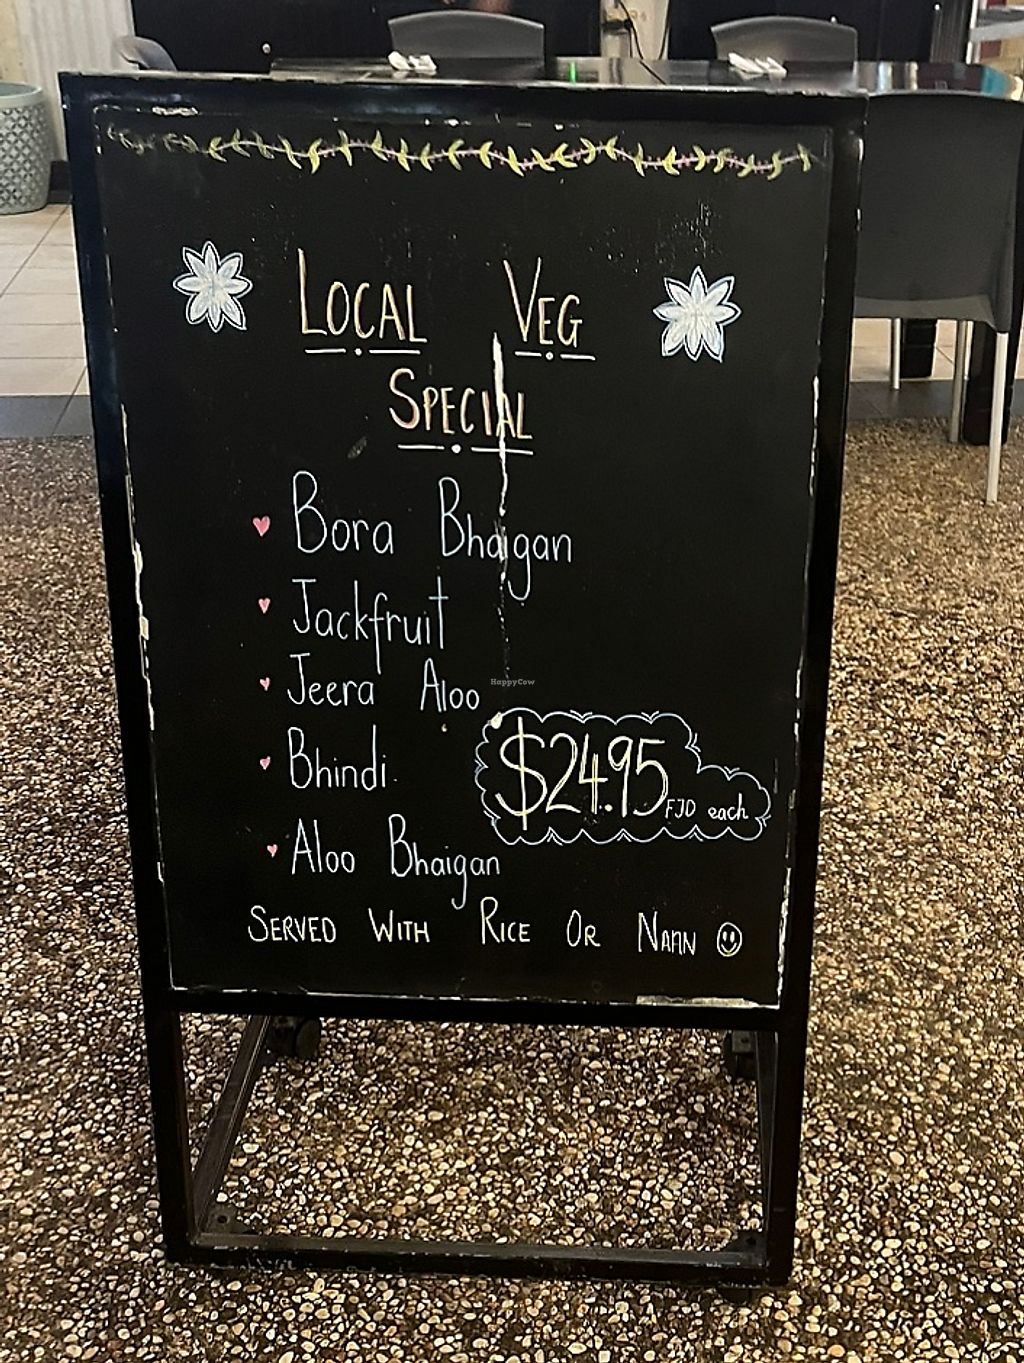 LOCAL VEG
SPECIAL
Bora Bhaigan
Jackfruit
Jeera Aloo
HappyCow
Bhindi
$24.95 FJD each
Aloo Bhaigan
SERVED WITH RICE OR NAAN